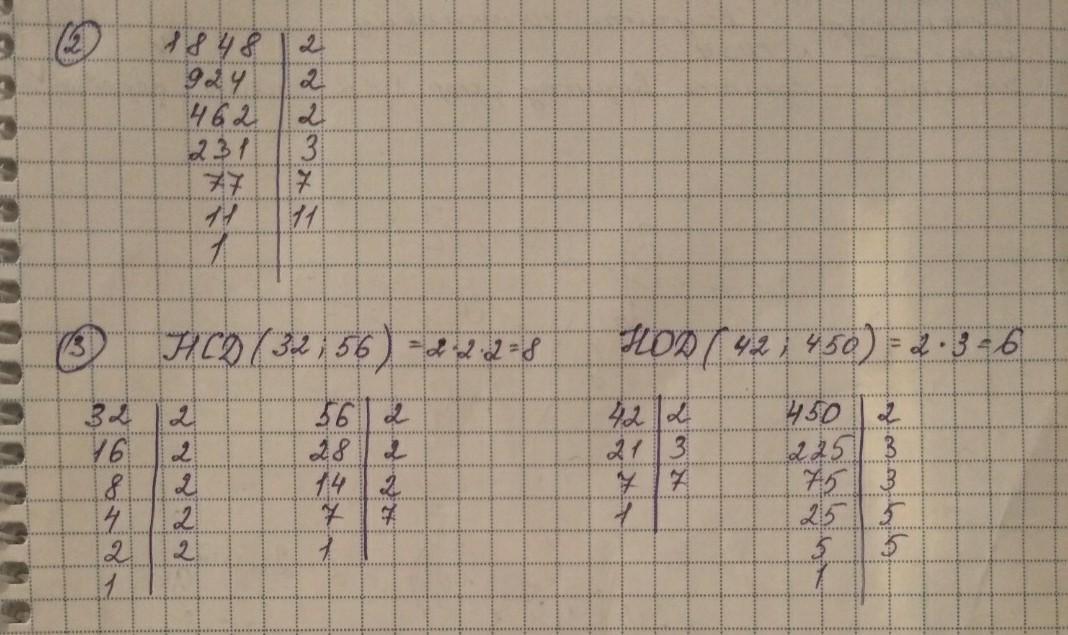 2 1848 | 2
924 | 2
462 | 2
231 | 3
77 | 7
11 | 11
1
3 НСД(32; 56) = 2·2·2=8 НОД(42; 450) = 2·3=6
32 | 2 56 | 2 42 | 2 450 | 2
16 | 2 28 | 2 21 | 3 225 | 3
8 | 2 14 | 2 7 | 7 75 | 3
4 | 2 7 | 7 1 25 | 5
2 | 2 1 5 | 5
1 1